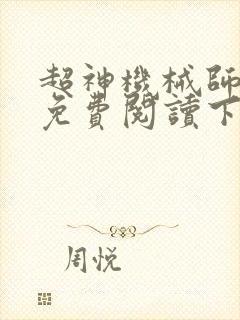 超神機械師
免費閱讀下
周悅